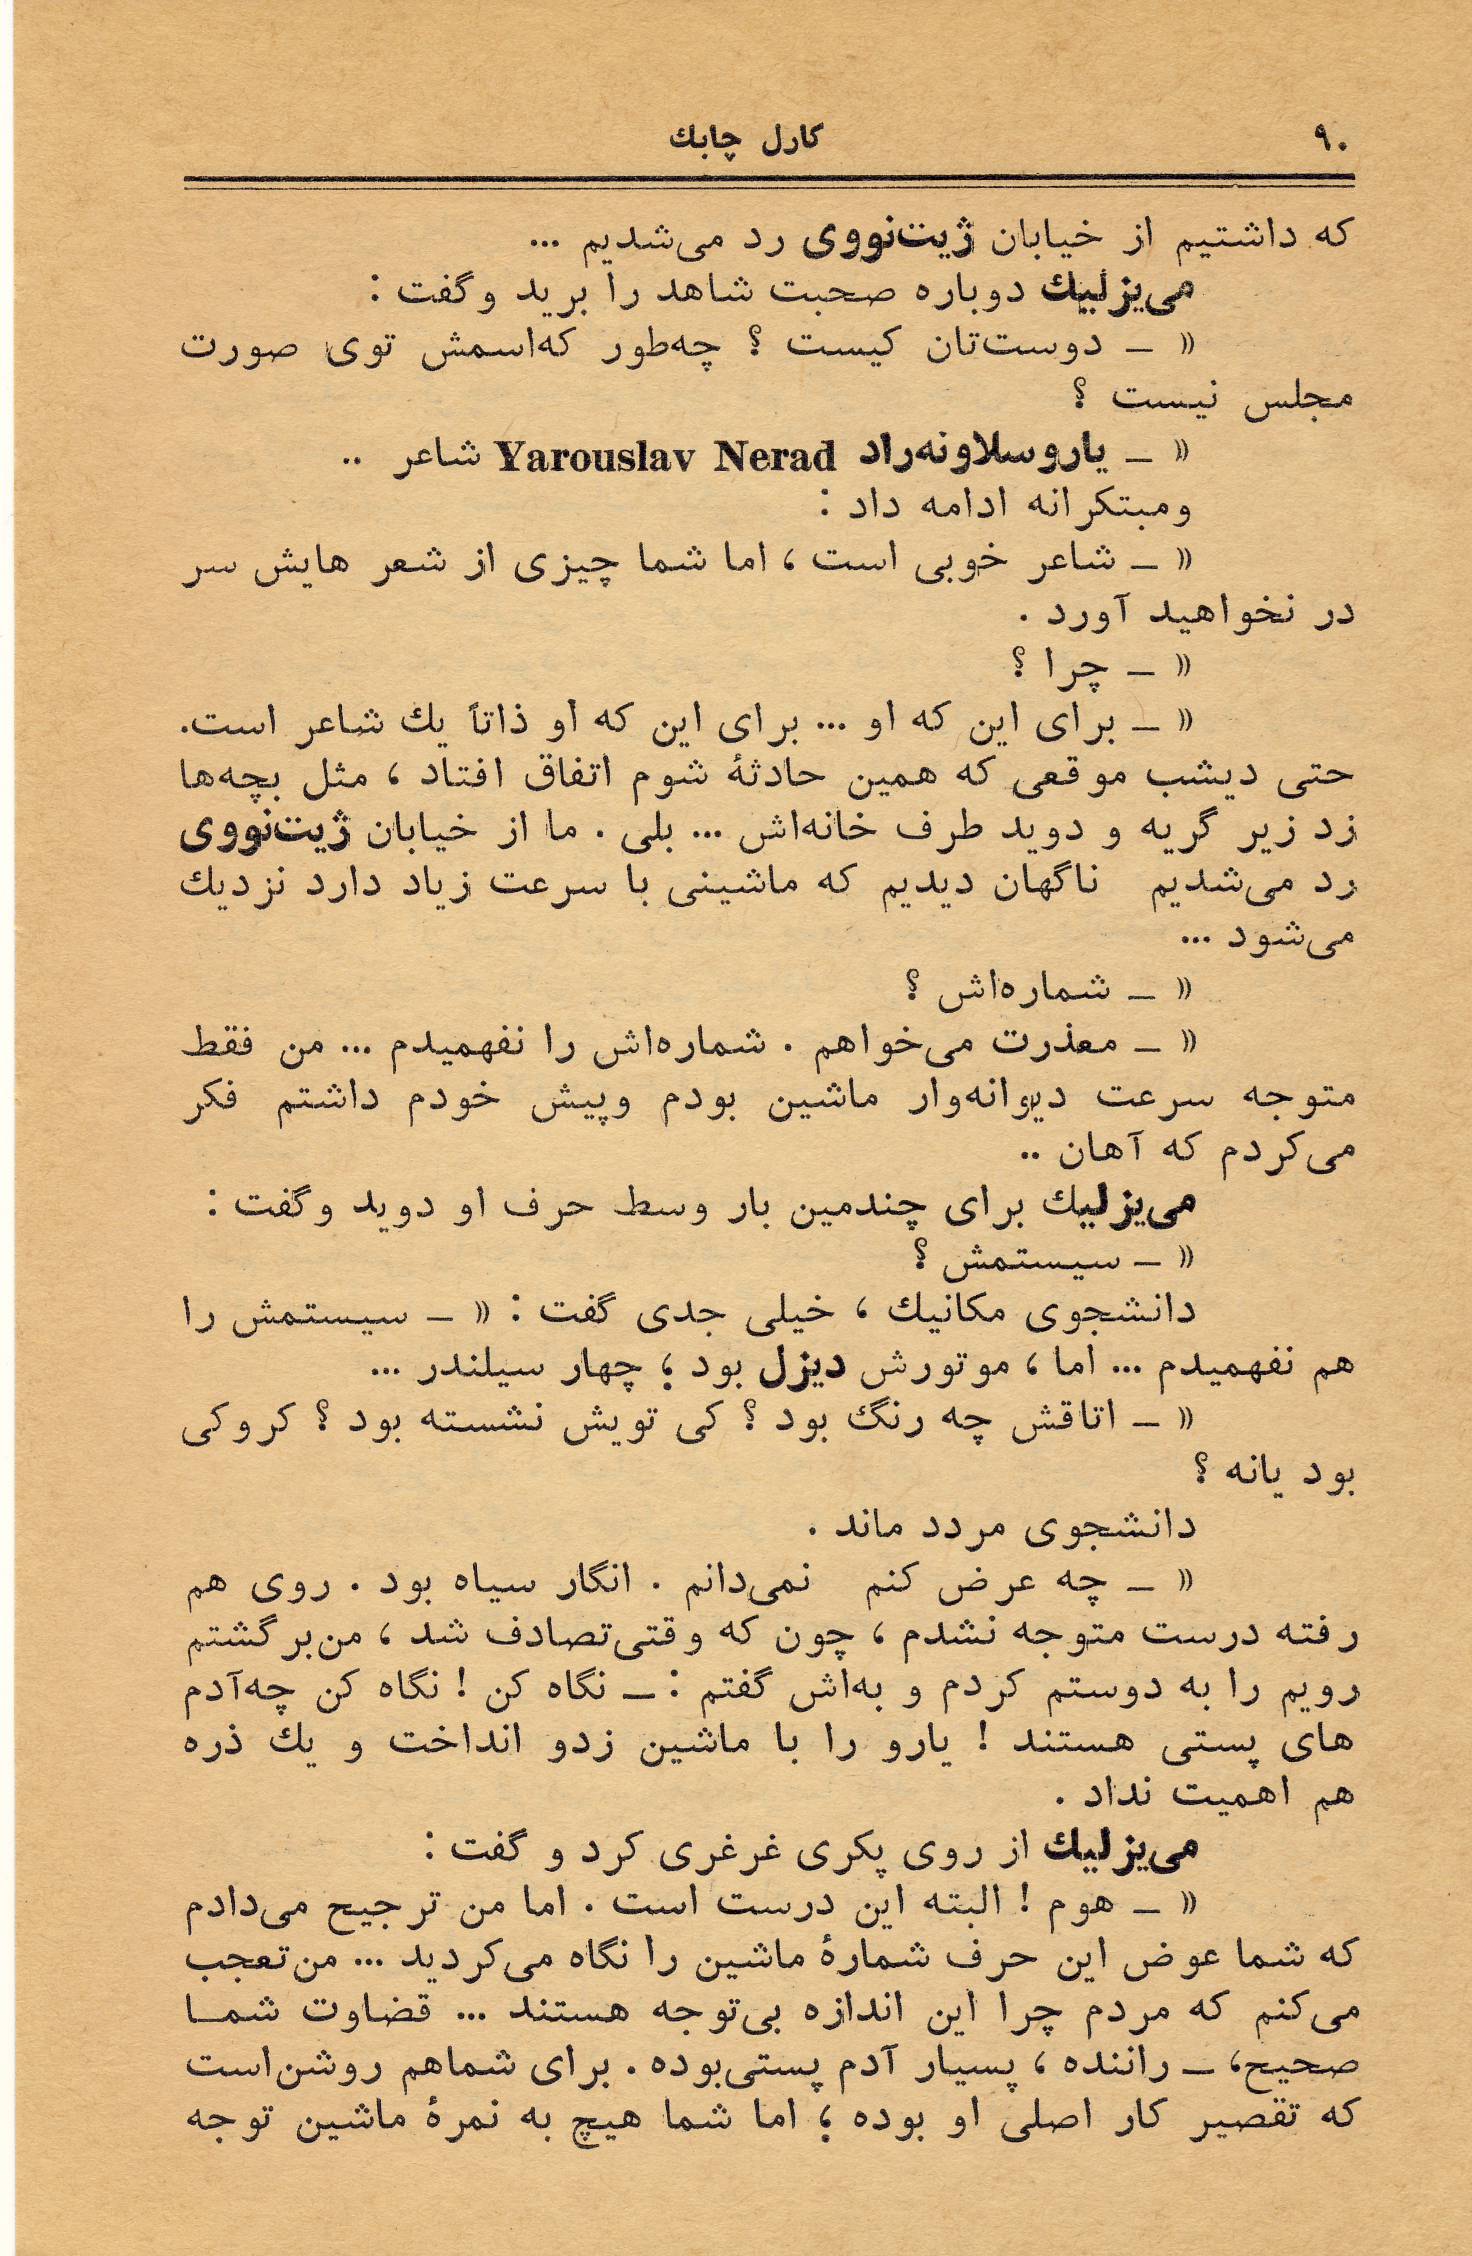 ۹۰
کارل چاپك
که داشتیم از خیابان ژیت‌نووی رد می‌شدیم ...
می‌یزلیك دوباره صحبت شاهد را برید وگفت :
« ــ دوست‌تان کیست ؟ چه‌طور که‌اسمش توی صورت
مجلس نیست ؟
« ــ یاروسلاونه‌راد Yarouslav Nerad شاعر ..
ومبتکرانه ادامه داد :
« ــ شاعر خوبی است ، اما شما چیزی از شعر هایش سر
در نخواهید آورد .
« ــ چرا ؟
« ــ برای این که او ... برای این که او ذاتاً یك شاعر است.
حتی دیشب موقعی که همین حادثهٔ شوم اتفاق افتاد ، مثل بچه‌ها
زد زیر گریه و دوید طرف خانه‌اش ... بلی . ما از خیابان ژیت‌نووی
رد می‌شدیم ناگهان دیدیم که ماشینی با سرعت زیاد دارد نزدیك
می‌شود ...
« ــ شماره‌اش ؟
« ــ معذرت می‌خواهم . شماره‌اش را نفهمیدم ... من فقط
متوجه سرعت دیوانه‌وار ماشین بودم وپیش خودم داشتم فکر
می‌کردم که آهان ..
می‌یزلیك برای چندمین بار وسط حرف او دوید وگفت :
« ــ سیستمش ؟
دانشجوی مکانیك ، خیلی جدی گفت : « ــ سیستمش را
هم نفهمیدم ... اما ، موتورش دیزل بود ؛ چهار سیلندر ...
« ــ اتاقش چه رنگ بود ؟ کی تویش نشسته بود ؟ کروکی
بود یانه ؟
دانشجوی مردد ماند .
« ــ چه عرض کنم نمی‌دانم . انگار سیاه بود . روی هم
رفته درست متوجه نشدم ، چون که وقتی‌تصادف شد ، من‌برگشتم
رویم را به دوستم کردم و به‌اش گفتم : ــ نگاه کن ! نگاه کن چه‌آدم
های پستی هستند ! یارو را با ماشین زدو انداخت و یك ذره
هم اهمیت نداد .
می‌یزلیك از روی پکری غرغری کرد و گفت :
« ــ هوم ! البته این درست است . اما من ترجیح می‌دادم
که شما عوض این حرف شمارهٔ ماشین را نگاه می‌کردید ... من‌تعجب
می‌کنم که مردم چرا این اندازه بی‌توجه هستند ... قضاوت شمـا
صحیح، ــ راننده ، پسیار آدم پستی‌بوده . برای شماهم روشن‌است
که تقصیر کار اصلی او بوده ؛ اما شما هیچ به نمرهٔ ماشین توجه